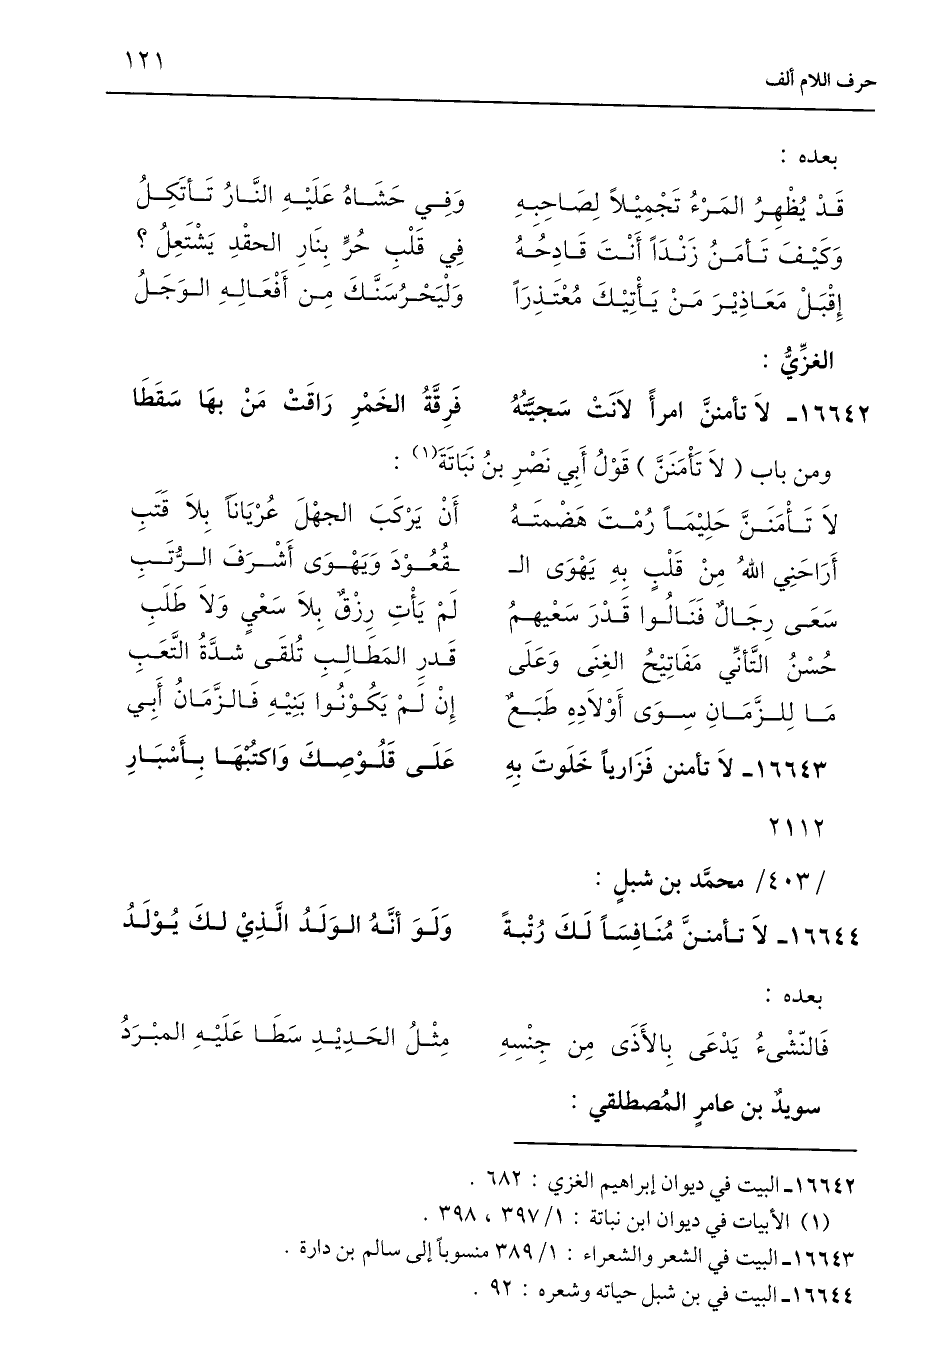 حرف اللام ألف ١٢١
بعده :
قَدْ يُظْهِرُ المَرْءُ تَجْمِيْلاً لِصَاحِبِهِ وَفِي حَشَاهُ عَلَيْهِ النَّارُ تَأتَكِلُ
وَكَيْفَ تَأمَنُ زَنْدَاً أَنْتَ قَادِحُهُ فِي قَلْبِ حُرٍّ بِنَارِ الحقْدِ يَشْتَعِلُ ؟
إقْبَلْ مَعَاذِيْرَ مَنْ يَأتِيْكَ مُعْتَذِرَاً وَلْيَحْرُسَنَّكَ مِن أَفْعَالِهِ الوَجَلُ
الغزِّيُّ :
١٦٦٤٢ـ لاَ تأمننَّ امرأً لاَنَتْ سَجيَّتُهُ فَرِقَّةُ الخَمْرِ رَاقَتْ مَنْ بهَا سَقَطَا
ومن باب ( لاَ تَأْمَنَنَّ ) قَوْلُ أبي نَصْرِ بنُ نَبَاتَةَ(١) :
لاَ تَأْمَنَنَّ حَلِيْمَاً رُمْتَ هَضْمَتَهُ أنْ يَرْكَبَ الجهْلَ عُرْيَاناً بِلاَ قَتَبِ
أرَاحَنِي اللهُ مِنْ قَلْبٍ بِهِ يَهْوَى الـ ـقُعُوْدَ وَيَهْوَى أشْرَفَ الرُّتَبِ
سَعَى رِجَالٌ فَنَالُوا قَدْرَ سَعْيهِمُ لَمْ يَأتِ رِزْقٌ بِلاَ سَعْيٍ وَلاَ طَلَبِ
حُسْنُ التَّأنِّي مَفَاتِيْحُ الغِنَى وَعَلَى قَدرِ المَطَالِبِ تُلقَى شدَّةُ التَّعَبِ
مَا لِلزَّمَانِ سِوَى أوْلاَدِهِ طَبَعٌ إنْ لَمْ يَكُوْنُوا بَنِيْهِ فَالزَّمَانُ أَبِي
١٦٦٤٣ـ لاَ تأمنن فَزَارياً خَلَوتَ بِهِ عَلَى قَلُوْصِكَ وَاكتُبْهَا بِأسْبَارِ
٢١١٢
/٤٠٣/ محمَّد بن شبلٍ :
١٦٦٤٤ـ لاَ تأمننَّ مُنَافِسَاً لَكَ رُتْبةً وَلَوَ أنَّهُ الوَلَدُ الَّذِيْ لكَ يُوْلَدُ
بعده :
فَالنّشْيءُ يَدْعَى بِالأَذَى مِن جِنْسِهِ مِثْلُ الحَدِيْدِ سَطَا عَلَيْهِ المبْرَدُ
سويدٌ بن عامرٍ المُصطلقي :
١٦٦٤٢ـ البيت في ديوان إبراهيم الغزي : ٦٨٢ .
(١) الأبيات في ديوان ابن نباتة : ١/ ٣٩٧ ، ٣٩٨ .
١٦٦٤٣ـ البيت في الشعر والشعراء : ١/ ٣٨٩ منسوباً إلى سالم بن دارة .
١٦٦٤٤ـ البيت في بن شبل حياته وشعره : ٩٢ .